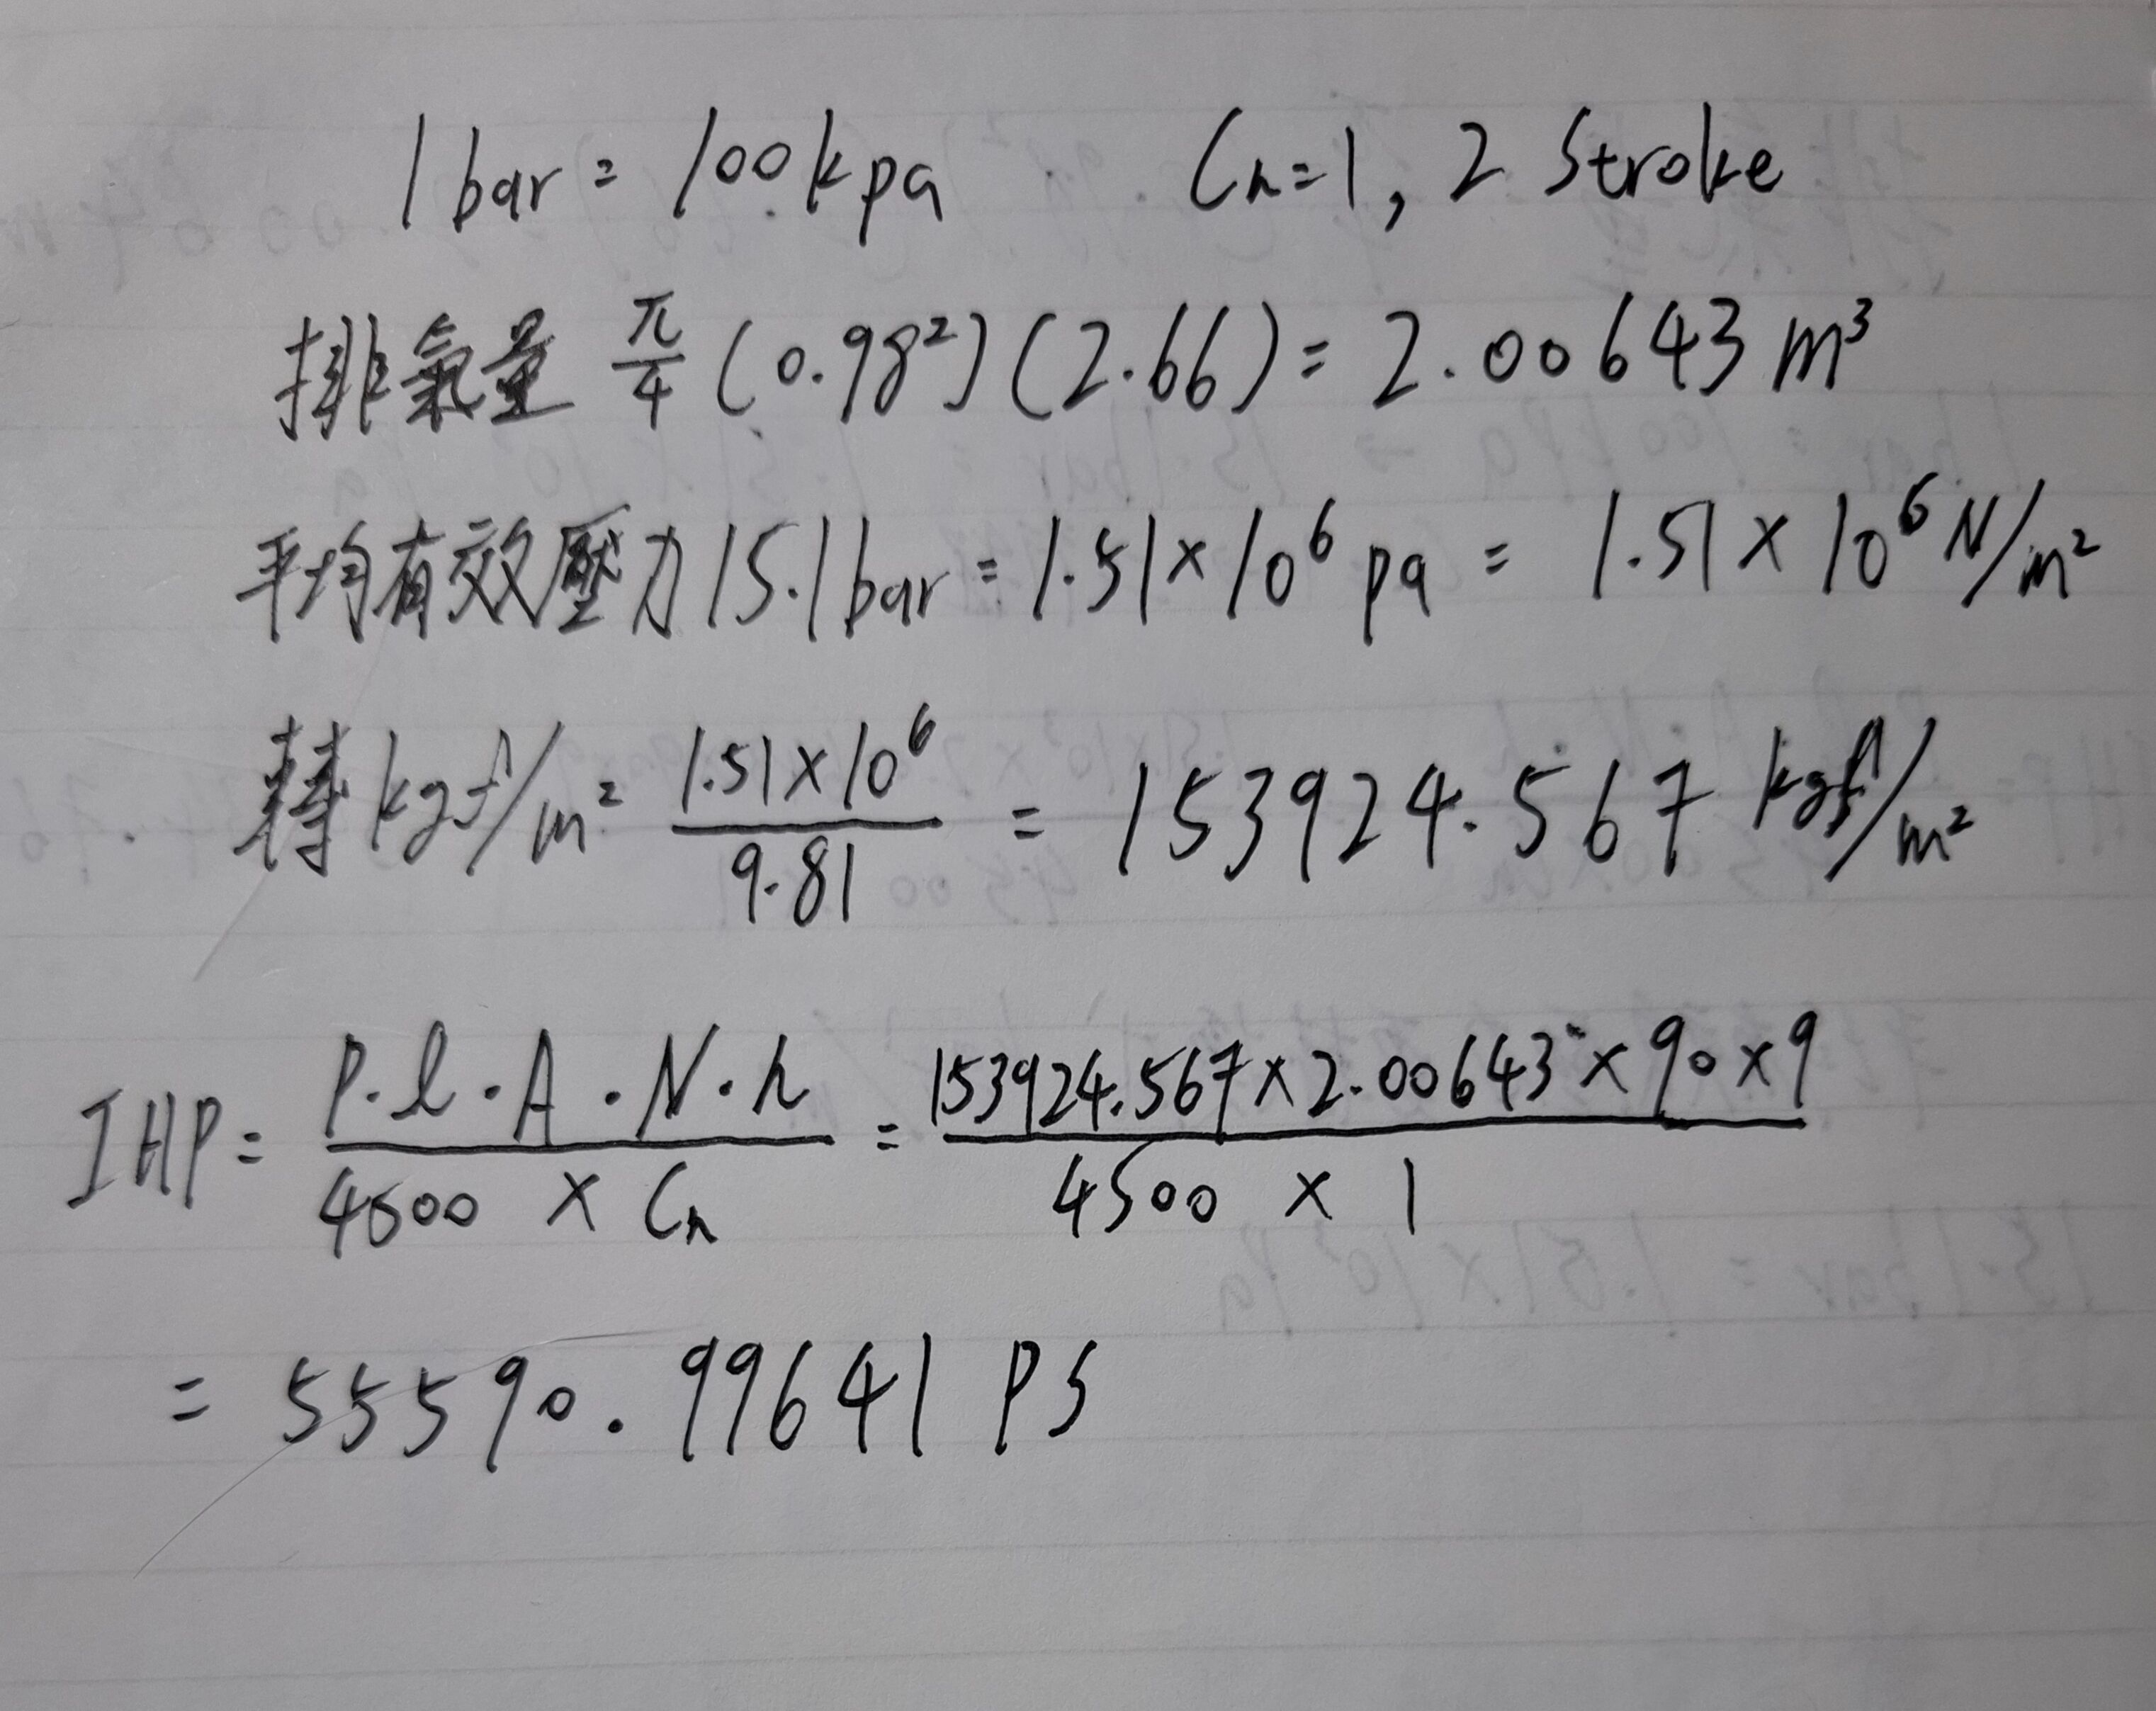 1 bar = 100 kpa Cn=1, 2 Stroke
排氣量 π/4 (0.98²)(2.66) = 2.00643 m³
平均有效壓力 15.1 bar = 1.51 × 10⁶ pa = 1.51 × 10⁶ N/m²
轉 kgf/m² 1.51×10⁶/9.81 = 153924.567 kgf/m²
IHP = P·l·A·N·n/4500 × Cn = 153924.567 × 2.00643 × 90 × 9/4500 × 1
= 55590.99641 PS